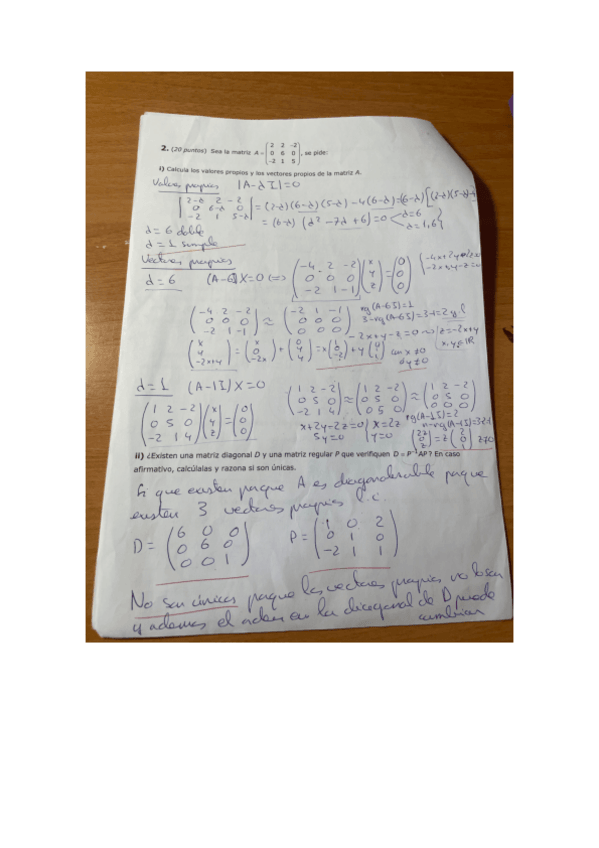 2. (20 puntos) Sea la matriz A = (2 2 -2; 0 6 0; -2 1 5), se pide:
i) Calcula los valores propios y los vectores propios de la matriz A.
Valores propios |A-λI|=0
|2-λ 2 -2; 0 6-λ 0; -2 1 5-λ| = (2-λ)(6-λ)(5-λ) - 4(6-λ) = (6-λ)[(2-λ)(5-λ)
λ=6 doble = (6-λ)(λ² - 7λ + 6) = 0 λ=6 λ=1,6
λ=1 simple
Vectores propios
λ=6 (A-6I)X=0 (=) (-4 2 -2; 0 0 0; -2 1 -1)(x; y; z) = (0; 0; 0) -4x+2y-2z=0 -2x+y-z=0
(-4 2 -2; 0 0 0; -2 1 -1) ≈ (-2 1 -1; 0 0 0; 0 0 0) rg(A-6I)=1
3-rg(A-6I)=3-1=2
-2x+y-z=0 z=-2x+y x,y∈IR
(x; y; -2x+y) = (x; 0; -2x) + (0; y; y) = x(1; 0; -2) + y(0; 1; 1) con x≠0 o y≠0
λ=1 (A-1I)X=0
(1 2 -2; 0 5 0; -2 1 4)(x; y; z) = (0; 0; 0)
(1 2 -2; 0 5 0; -2 1 4) ≈ (1 2 -2; 0 5 0; 0 5 0) ≈ (1 2 -2; 0 5 0; 0 0 0)
rg(A-1I)=2
x+2y-2z=0 x=2z
5y=0 y=0
(2z; 0; z) = z(2; 0; 1) z≠0
ii) ¿Existen una matriz diagonal D y una matriz regular P que verifiquen D = P⁻¹AP? En caso
afirmativo, calcúlalas y razona si son únicas.
que existen porque A es diagonalizable porque
existen 3 vectores propios l.i.
D = (6 0 0; 0 6 0; 0 0 1) P = (1 0 2; 0 1 0; -2 1 1)
No son únicas porque los vectores propios no lo son
y además el orden en la diagonal de D puede
cambiar